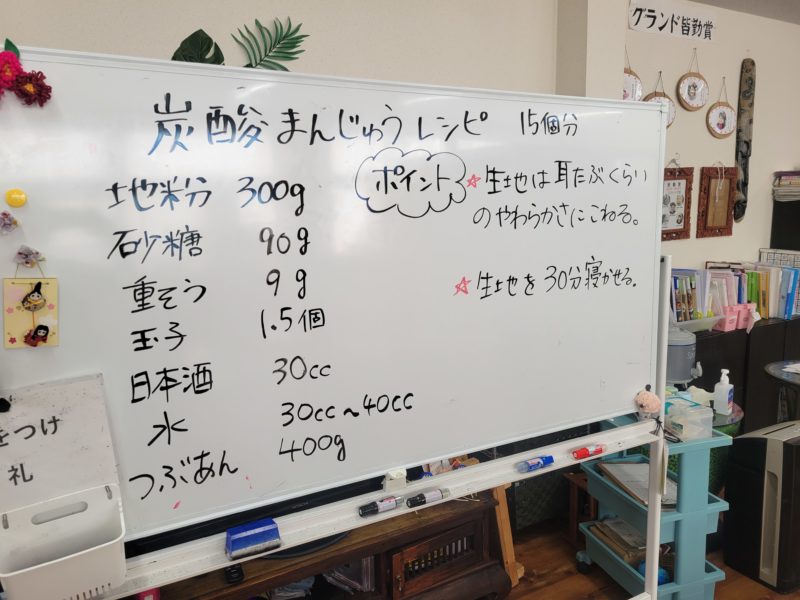 グランド皆勤賞
炭酸まんじゅうレシピ 15個分
地粉 300g
砂糖 90g
重そう 9g
玉子 1.5個
日本酒 30cc
水 30cc〜40cc
つぶあん 400g
ポイント
☆生地は耳たぶくらい
のやわらかさにこねる。
☆生地を30分寝かせる。
をつけ
礼